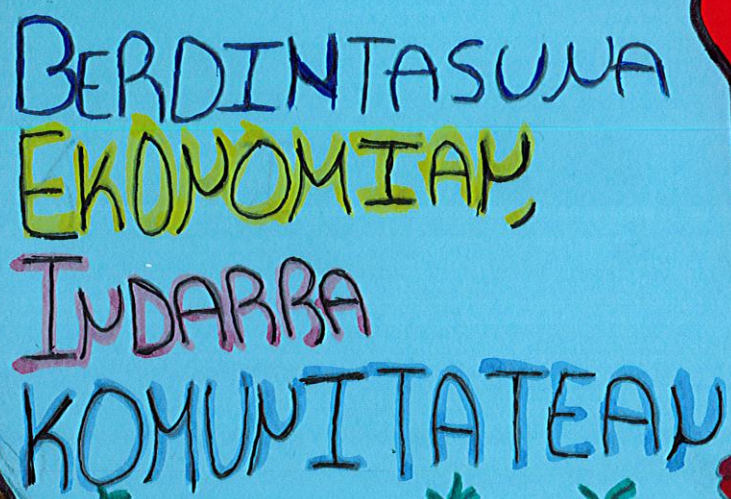 BERDINTASUNA
EKONOMIAN,
INDARRA
KOMUNITATEAN